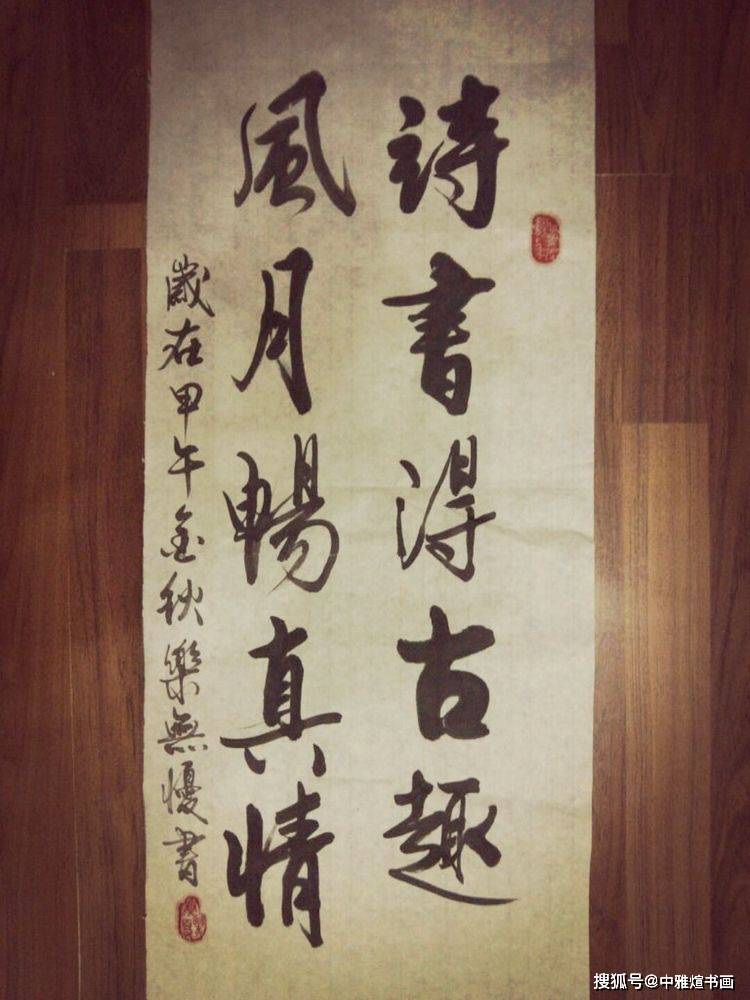 詩書得古趣
風月暢真情
歲在甲午金秋樂無憂書
搜狐号@中雅煊书画